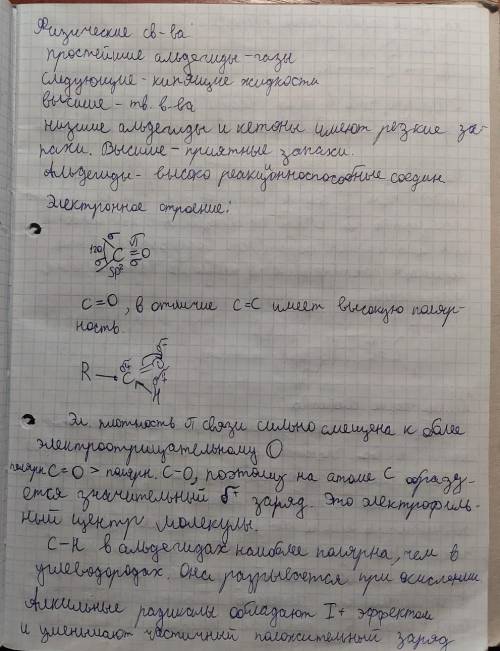 Физические св-ва
простейшие альдегиды - газы
следующие - кипящие жидкости
высшие - тв. в-ва
низшие альдегиды и кетоны имеют резкие за-
пахи. Высшие - приятные запахи.
Альдегиды - высоко реакционноспособные соедин.
Электронное строение:
120 σ C π O
σ σ
sp²
C=O, в отличие C=C имеет высокую поляр-
ность.
R → C O
H
Эл. плотность π связи сильно смещена к более
электроотрицательному O
полярн. C=O > полярн. C-O, поэтому на атоме C образу-
ется значительный δ+ заряд. Это электрофиль-
ный центр молекулы.
C-H в альдегидах наиболее полярна, чем в
углеводородах. Она разрывается при окислении
Алкильные радикалы обладают I+ эффектом
и уменьшают частичный положительный заряд